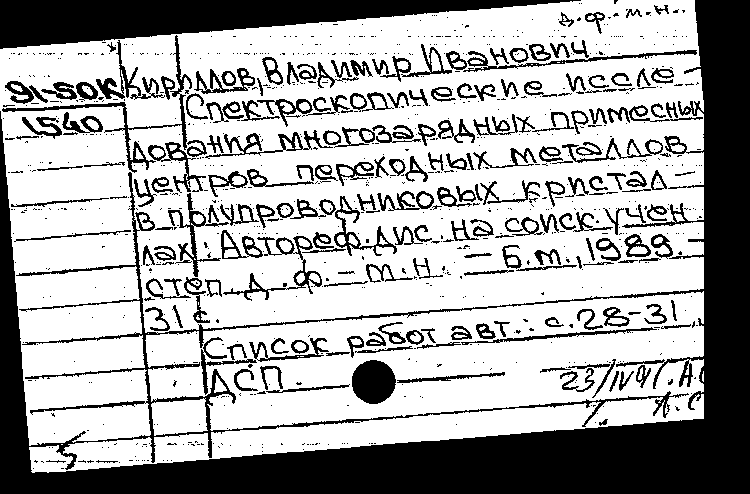 д.ф.-м.н.
91-50К Кириллов, Владимир Иванович.
1540 Спектроскопические иссле-
дования многозарядных примесных
центров переходных металлов
в полупроводниковых кристал-
лах: Автореф. дис. на соиск. учен.
степ. д.ф.-м.н. - Б.м., 1989. -
31 с.
Список работ авт.: с. 28-31
ДСП.
23/IV
5